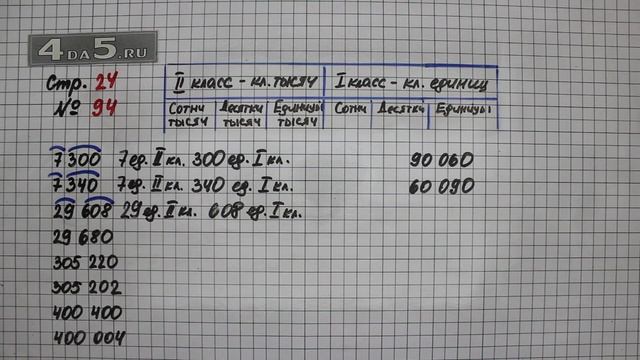 4DA5.RU
Стр. 24
№ 94
II класс - кл. тысяч I класс - кл. единиц
Сотни тысяч Десятки тысяч Единицы тысяч Сотни Десятки Единицы
7 300 7 ед. II кл. 300 ед. I кл. 90 060
7 340 7 ед. II кл. 340 ед. I кл. 60 090
29 608 29 ед. II кл. 608 ед. I кл.
29 680
305 220
305 202
400 400
400 004